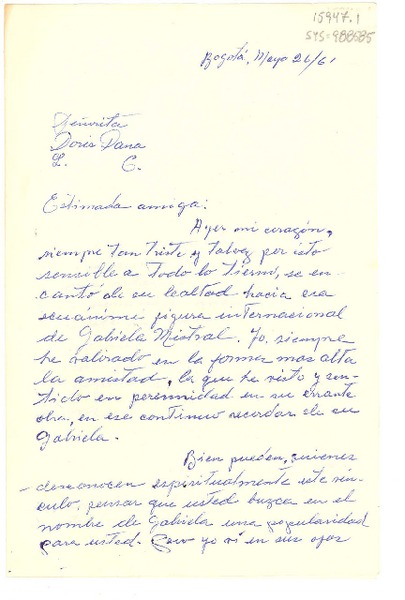 15947.1
sys=988585
Bogotá, Mayo 26/61
Señorita
Doris Dana
L. C.
Estimada amiga:
Ayer mi corazón,
siempre tan triste y talvez por esto
sensible a todo lo tierno, se en-
cantó de su lealtad hacia esa
ecuánime figura internacional
de Gabriela Mistral. Yo, siempre
he valorado en la forma mas alta
la amistad, la que he visto y sen-
tido en perennidad en su errante
obra, en ese continuo recordar de su
Gabriela.
Bien pueden, quienes
desconocen espiritualmente este vín-
culo, pensar que usted busca en el
nombre de Gabriela una popularidad
para usted. Pero yo vi en sus ojos